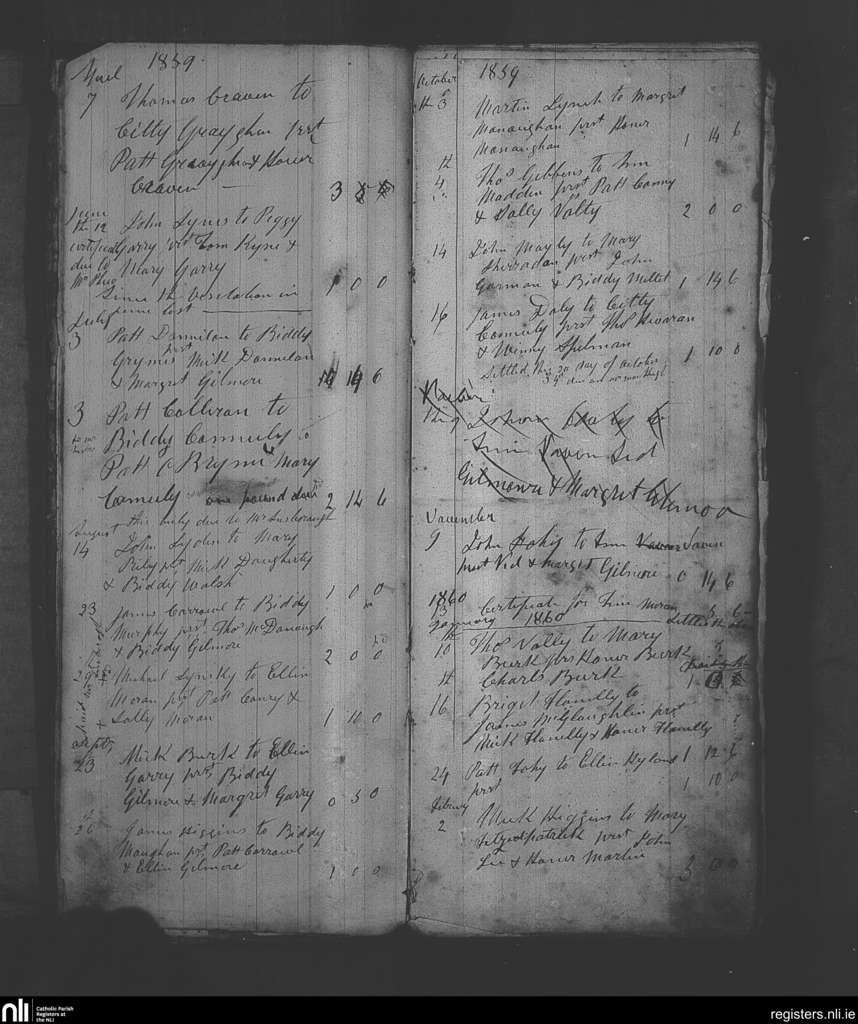 1859
7 Thomas Craven to
Citty Grayghan prst
Patt Graayghan & Honor
Craven
3
June
th 12 John Lynis to Peggy
certificate Garry prst Tom Ryne &
due to Mary Garry
Since th Visetation in
June last
1 0 0
July
3 Patt Donnilan to Biddy
Grymis prst Mick Donnelan
& Margret Gilmore
14 6
3 Patt Colleran to
Biddy Connuly
Patt O Bryne & Mary
Connuly one pound due
2 14 6
August this only due to Mr
14 John Lydon to Mary
Rely prst Mick Daugherty
& Biddy Walsh
1 0 0
23 James Carrawl to Biddy
Murphy prst Thos McDanaugh
& Biddy Gilmore
2 0 0
Michael Lynskly to Ellin
Moran prst Patt Canry &
Sally Moran
1 10 0
Septr
23 Mick Burk to Ellin
Garry prst Biddy
Gilmore & Margret Garry
0 5 0
26 James Higgins to Biddy
Maughan prst Patt Carrawl
& Ellin Gilmore
1 0 0
October 1859
th 3 Martin Lynch to Margret
Monaughan prst Honor
Monaughan
1 14 6
th
4 Thos Gibbins to Ann
Maddin prst Patt Canny
& Sally Valty
2 0 0
14 John Mayly to Mary
Sherradan prst John
Garman & Biddy Mullet
1 14 6
16 James Daly to Citty
Connuly prst Thos Hivaran
& Winny Spelman
1 10 0
Settled this 20 day of October
th 9 John
Ann
Gilmowre & Margret Gilmor
November
9 John to Ann Vavin
& Margret Gilmore
0 14 6
1860
13 Certificate for Ann Moran 5 6
January 1860
th
10 Thos Vally to Mary
Burk prs Honor Burk
Charls Burk
1
th
16 Briget Flanully to
James McGlaughlin prst
Mick Flanully & Honor Flanully
1 12 6
24 Patt Fahy to Ellin Hyland
prst
1 10 0
Febury
2 Mick Higgins to Mary
Fitzedpatrick prst John
Lee & Honor Martin
3 0 0
nli
Catholic Parish
Registers at
the NLI
registers.nli.ie